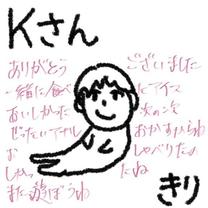 Kさん
ありがとう ございました
一緒に食べ アイス
おいしかった 次の次
ぜったい おかす
お しゃべりたの
しかっ たね
また遊ぼうね
きり